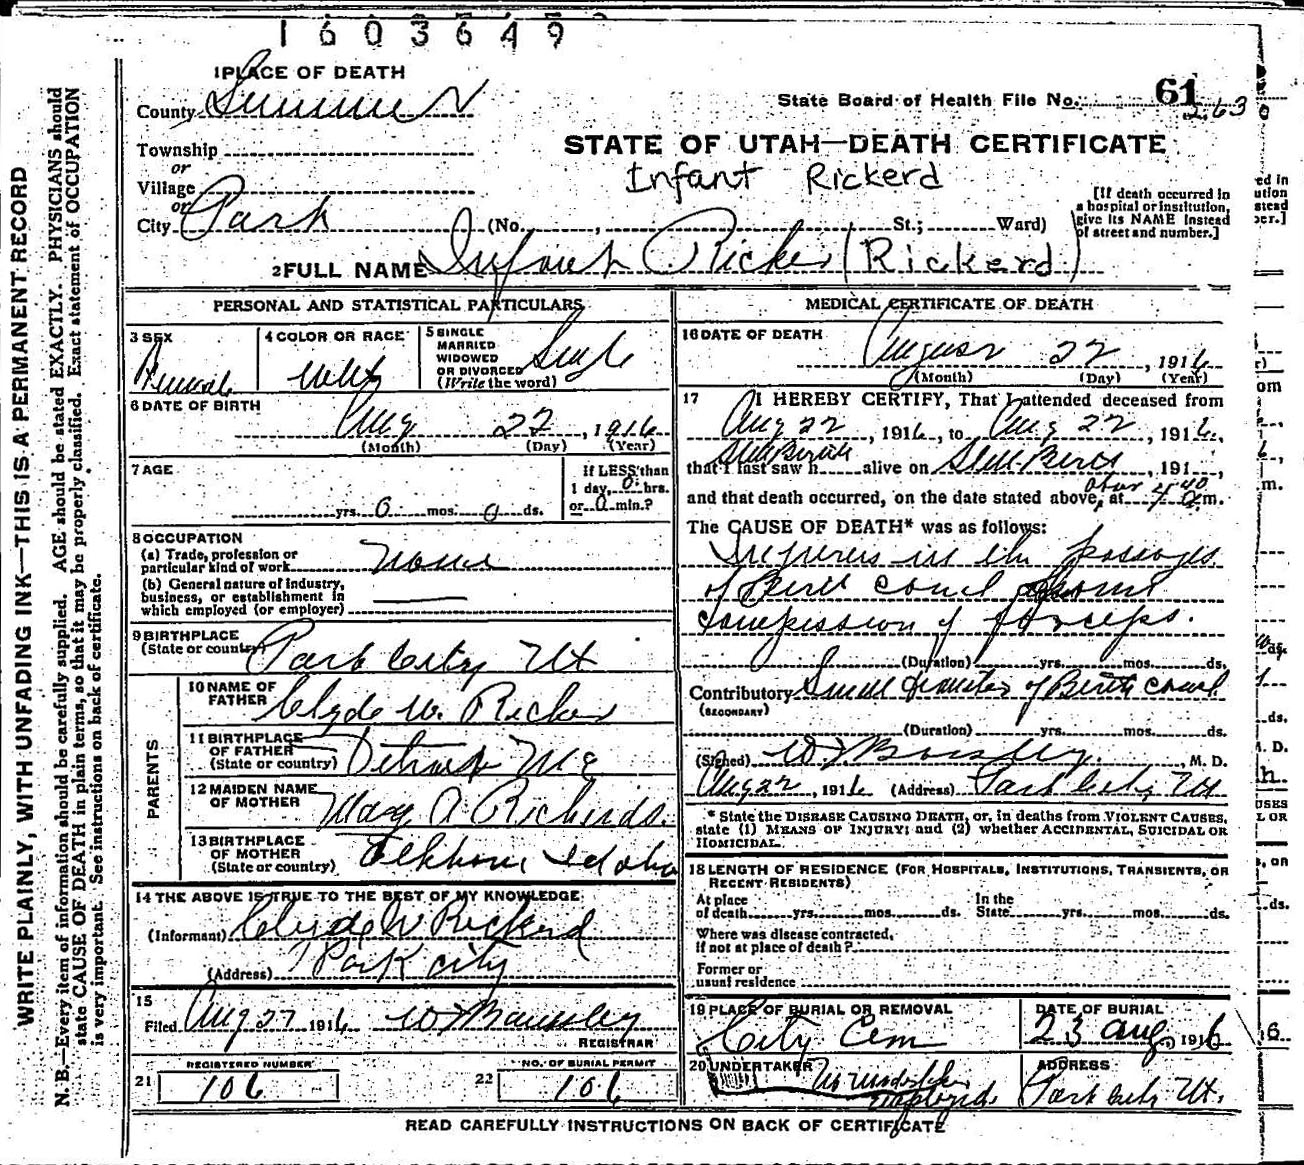 1603649
1 PLACE OF DEATH
County Summit
State Board of Health File No. 61
263
Township
STATE OF UTAH—DEATH CERTIFICATE
or
Village
Infant Rickerd
or
City Park (No. , St.; Ward)
[If death occurred in
a hospital or institution,
give its NAME instead
of street and number.]
2 FULL NAME Infant Ricker (Rickerd)
PERSONAL AND STATISTICAL PARTICULARS
3 SEX
Female
4 COLOR OR RACE
White
5 SINGLE
MARRIED
WIDOWED
OR DIVORCED
(Write the word)
Single
6 DATE OF BIRTH
Aug 22, 1916
(Month) (Day) (Year)
7 AGE
yrs. 0 mos. 0 ds.
If LESS than
1 day, 0 hrs.
or 0 min.?
8 OCCUPATION
(a) Trade, profession or
particular kind of work None
(b) General nature of industry,
business, or establishment in
which employed (or employer)
9 BIRTHPLACE
(State or country) Park City Ut
PARENTS
10 NAME OF
FATHER Clyde W. Ricker
11 BIRTHPLACE
OF FATHER
(State or country) Detroit
12 MAIDEN NAME
OF MOTHER Mary A Richerds.
13 BIRTHPLACE
OF MOTHER
(State or country) Elkhorn Idaho
14 THE ABOVE IS TRUE TO THE BEST OF MY KNOWLEDGE
(Informant) Clyde W Rickerd
(Address) Park City
15
Filed Aug 27 1916
REGISTRAR
REGISTERED NUMBER
21 106
NO. OF BURIAL PERMIT
22 106
MEDICAL CERTIFICATE OF DEATH
16 DATE OF DEATH
August 22, 1916
(Month) (Day) (Year)
17 I HEREBY CERTIFY, That I attended deceased from
Aug 22, 1916, to Aug 22, 1916,
Still Birth
that I last saw h alive on Still Birth, 191 ,
and that death occurred, on the date stated above, at m.
The CAUSE OF DEATH* was as follows:
Injuries in the passage
of Birth canal from
compression of forceps.
(Duration) yrs. mos. ds.
Contributory Small diameter of Birth canal
(SECONDARY)
(Duration) yrs. mos. ds.
(Signed) , M. D.
Aug 22, 1916 (Address) Park City Ut
* State the DISEASE CAUSING DEATH, or, in deaths from VIOLENT CAUSES,
state (1) MEANS OF INJURY; and (2) whether ACCIDENTAL, SUICIDAL OR
HOMICIDAL.
18 LENGTH OF RESIDENCE (FOR HOSPITALS, INSTITUTIONS, TRANSIENTS, OR
RECENT RESIDENTS)
At place
of death yrs. mos. ds.
In the
State yrs. mos. ds.
Where was disease contracted,
if not at place of death?
Former or
usual residence
19 PLACE OF BURIAL OR REMOVAL
City Cem
DATE OF BURIAL
23 Aug, 1916
20 UNDERTAKER
ADDRESS
Park City Ut.
READ CAREFULLY INSTRUCTIONS ON BACK OF CERTIFICATE
WRITE PLAINLY, WITH UNFADING INK—THIS IS A PERMANENT RECORD
N. B.—Every item of information should be carefully supplied. AGE should be stated EXACTLY. PHYSICIANS should
state CAUSE OF DEATH in plain terms, so that it may be properly classified. Exact statement of OCCUPATION
is very important. See instructions on back of certificate.